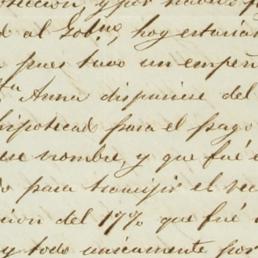 teccion, y por nuevo p
d al Gobno, hoy estarian
pues tuvo un empeñ
Sta Anna dispusiese del
hipotecad para el pago
ese nombre, y que fué e
o para transijir el rec
cion del 17% que fué
y todo unicamente por